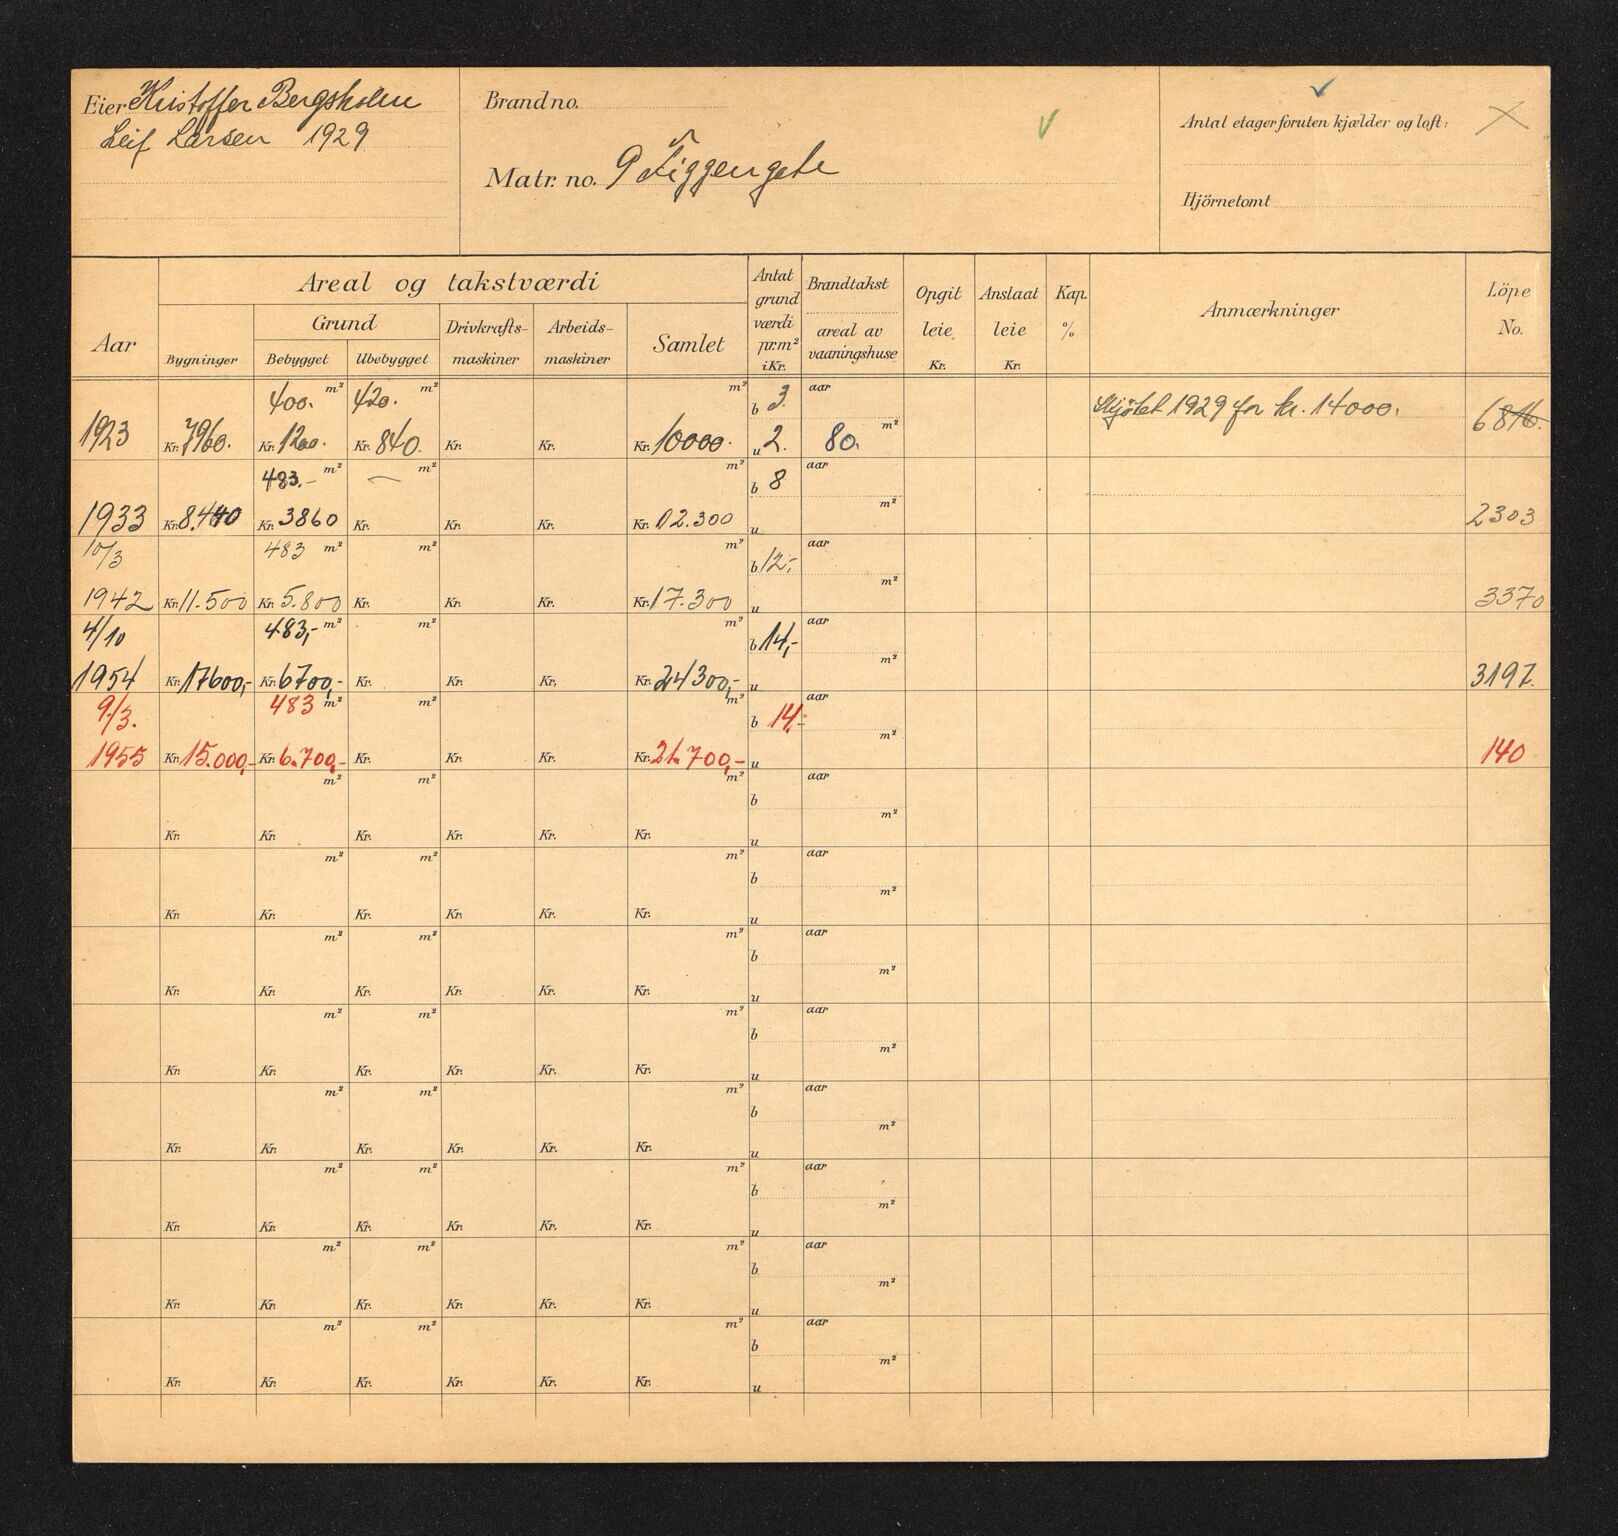 Eier Kristoffer Bergsholm
Leif Larsen 1929
Brand no.
Matr. no. 9 Figgengate
Antal etager foruten kjælder og loft:
Hjörnetomt
Aar
Areal og takstværdi
Bygninger
Grund
Bebygget
Ubebygget
Drivkrafts-
maskiner
Arbeids-
maskiner
Samlet
Antat
grund
værdi
pr. m²
i Kr.
Brandtakst
areal av
vaaningshuse
Opgit
leie
Kr.
Anslaat
leie
Kr.
Kap.
%
Anmærkninger
Löpe
No.
400. m² 420. m² m² b 3. aar Skjötet 1929 for kr. 14000.
1923 Kr. 7960. Kr. 1200. Kr. 840. Kr. Kr. Kr. 10000. u 2. 80. m² 6816.
483.- m² — m² m² b 8 aar
1933 Kr. 8.440 Kr. 3860 Kr. Kr. Kr. Kr. 12.300 u m² 2303
10/3 483 m² m² m² b 12,- aar
1942 Kr. 11.500 Kr. 5.800 Kr. Kr. Kr. Kr. 17.300 u m² 3370
4/10 483,- m² m² m² b 14,- aar
1954 Kr. 17600,- Kr. 6700,- Kr. Kr. Kr. Kr. 24300,- u m² 3197.
9/3. 483 m² m² m² b 14,- aar
1955 Kr. 15.000,- Kr. 6.700,- Kr. Kr. Kr. Kr. 21.700,- u m² 140
m² m² m² b aar
Kr. Kr. Kr. Kr. Kr. Kr. u m²
m² m² m² b aar
Kr. Kr. Kr. Kr. Kr. Kr. u m²
m² m² m² b aar
Kr. Kr. Kr. Kr. Kr. Kr. u m²
m² m² m² b aar
Kr. Kr. Kr. Kr. Kr. Kr. u m²
m² m² m² b aar
Kr. Kr. Kr. Kr. Kr. Kr. u m²
m² m² m² b aar
Kr. Kr. Kr. Kr. Kr. Kr. u m²
m² m² m² b aar
Kr. Kr. Kr. Kr. Kr. Kr. u m²
m² m² m² b aar
Kr. Kr. Kr. Kr. Kr. Kr. u m²